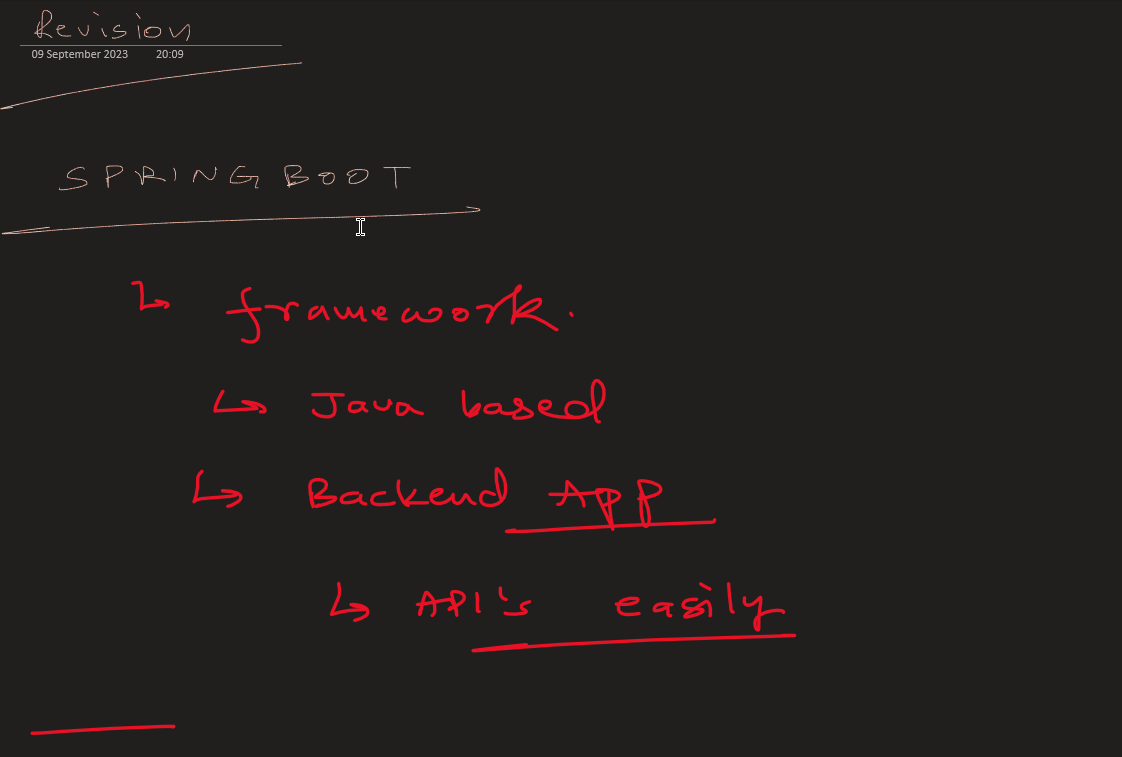 Revision
09 September 2023 20:09
SPRING BOOT
↳ framework.
↳ Java based
↳ Backend App
↳ API's easily